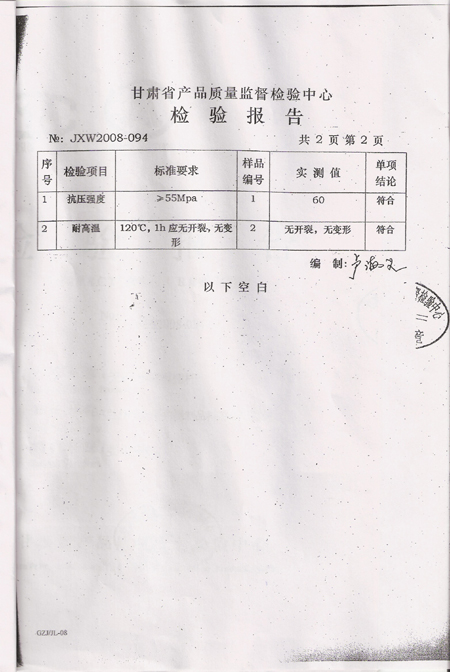 甘肃省产品质量监督检验中心
检 验 报 告
№: JXW2008-094 共 2 页 第 2 页
序号 检验项目 标准要求 样品编号 实 测 值 单项结论
1 抗压强度 ≥55Mpa 1 60 符合
2 耐高温 120℃, 1h 应无开裂, 无变形 2 无开裂, 无变形 符合
编 制:
以 下 空 白
检验中心
GZJ/JL-08